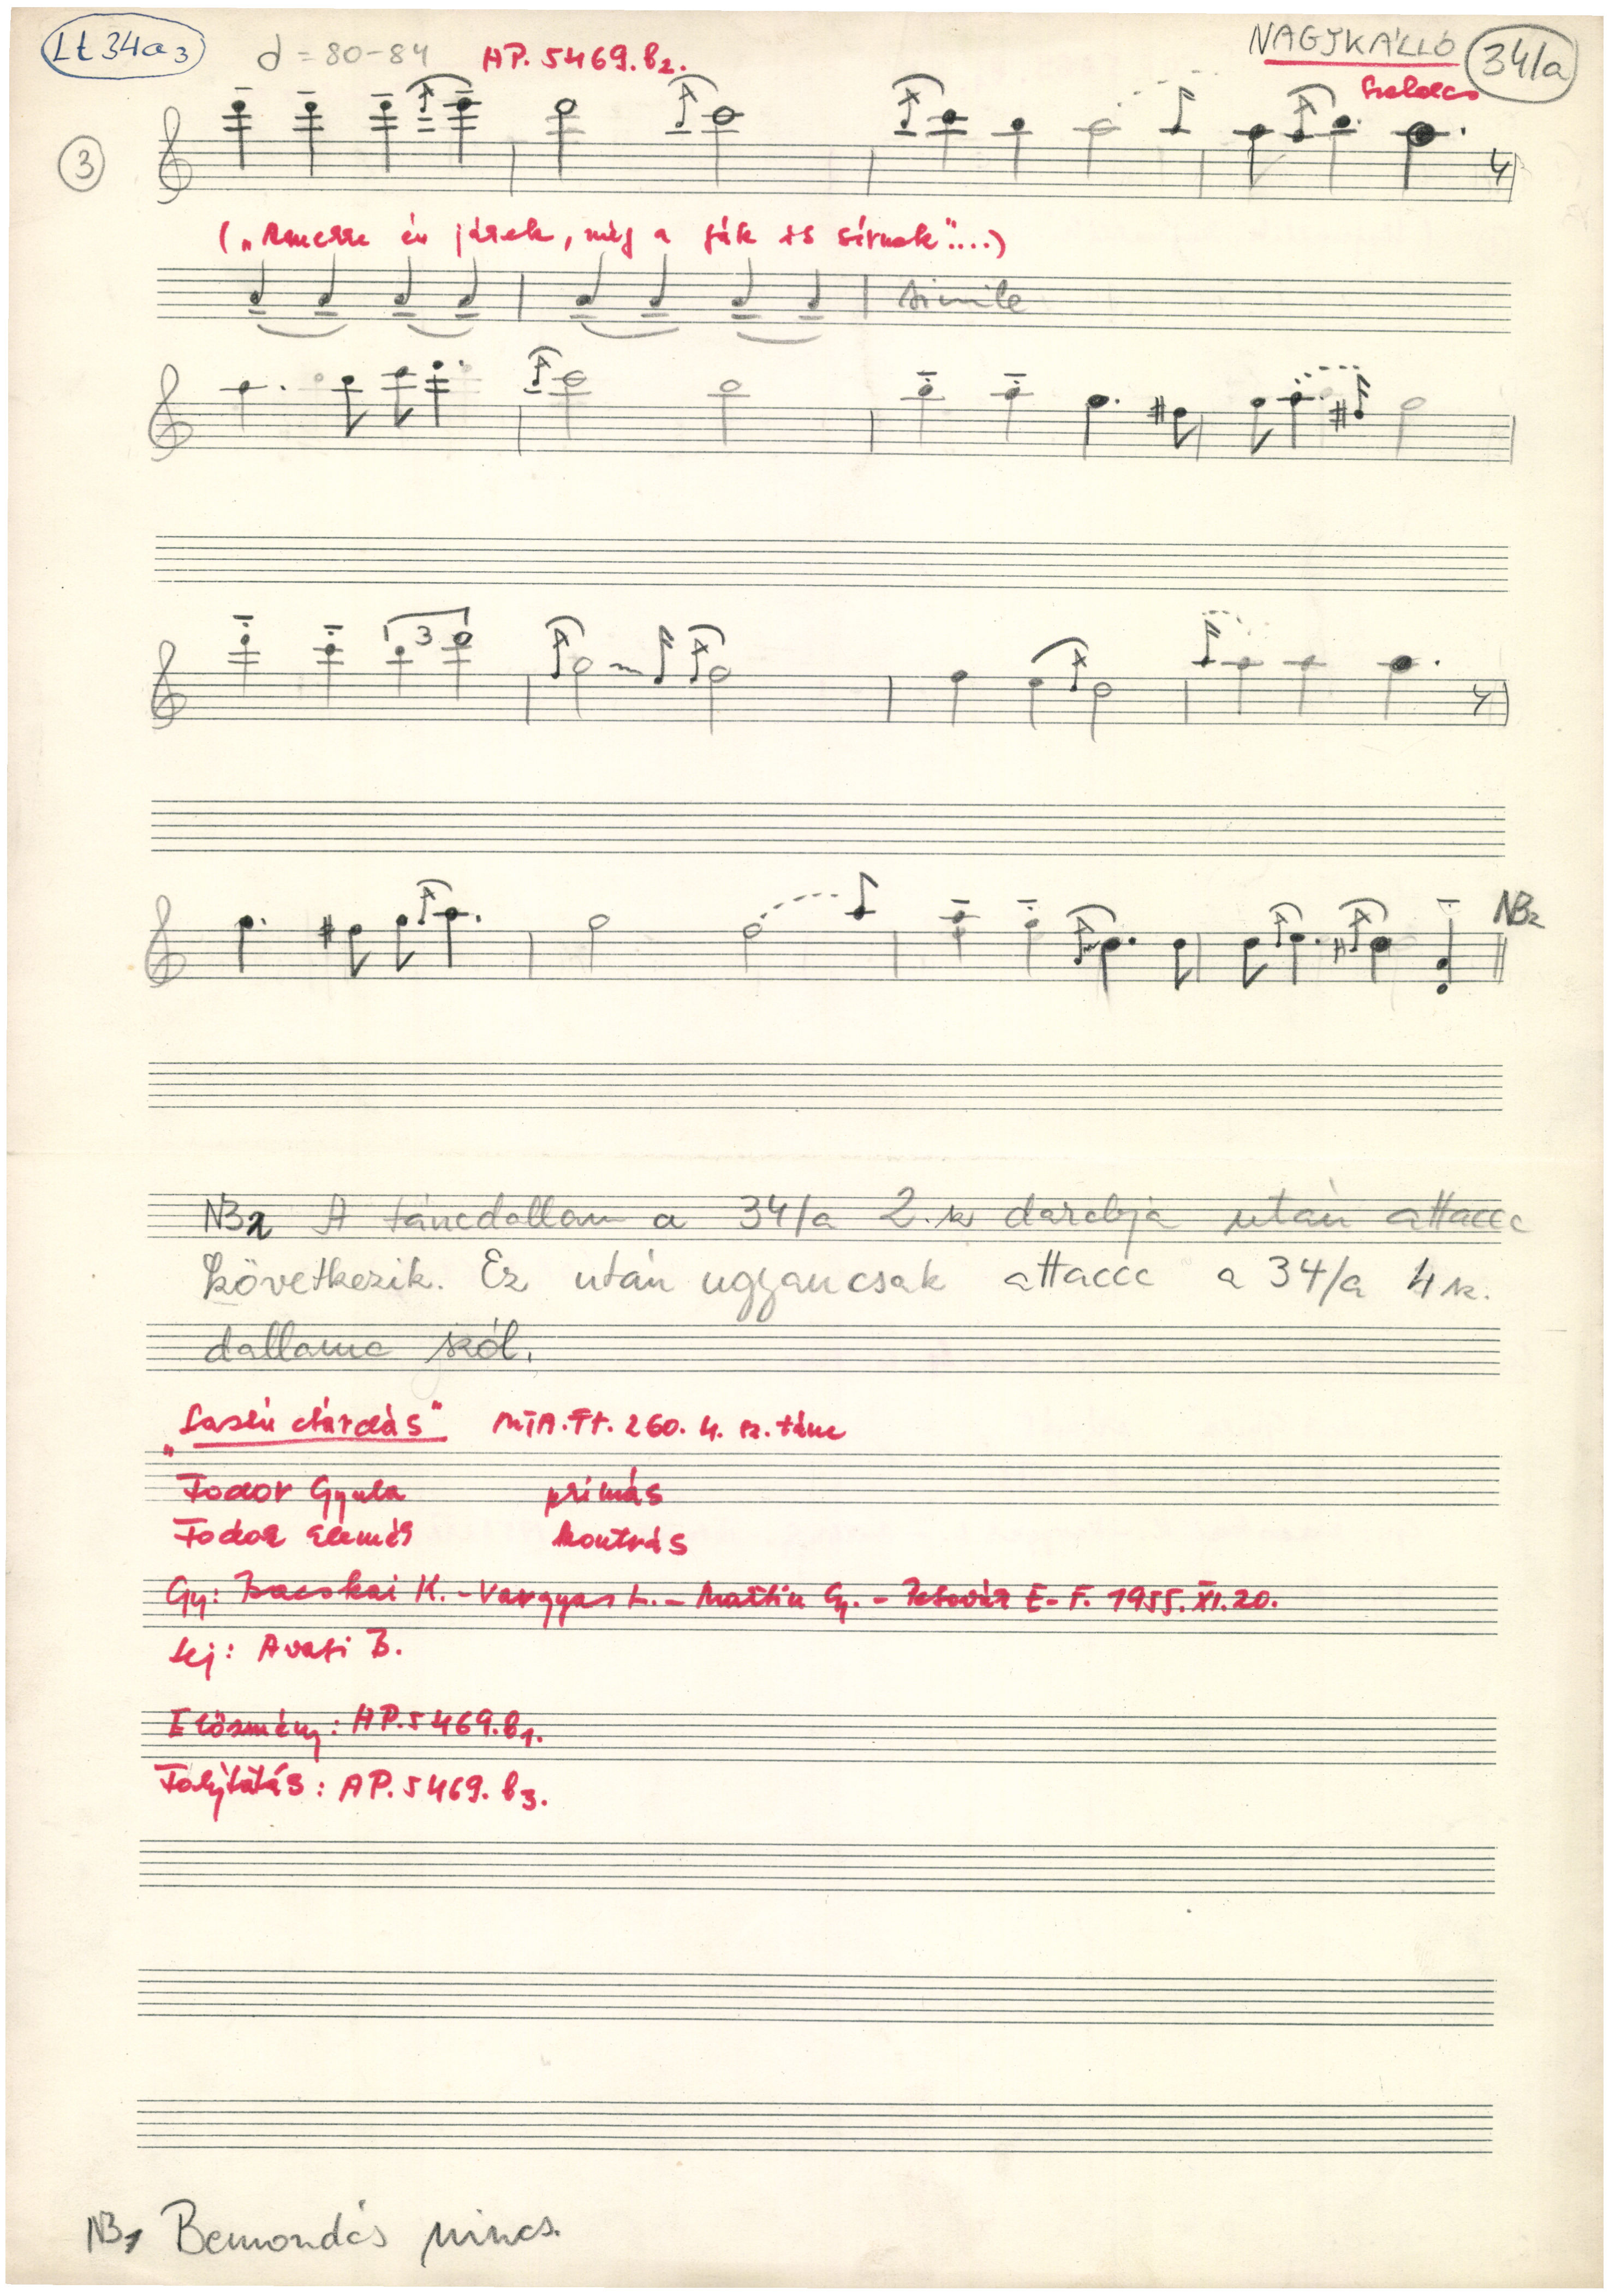 Lt 34a3 d = 80-84 AP. 5469. b2. NAGYKÁLLÓ 34/a
Szabolcs
3
4
("Amerre én járok, még a fák is sírnak"....)
simile
3
4
NB2
NB2 A táncdallam a 34/a 2. sz darabja után attacca
következik. Ez után ugyancsak attacca a 34/a 4 sz.
dallama szól.
"Lassú csárdás" MTA. Ft. 260. 4. sz. tánc
Fodor Gyula prímás
Fodor Elemér kontrás
Gy: Bacskai K. - Vargyas L. - Martin Gy. - Pesovár E-F. 1955. XI. 20.
Lej: Avasi B.
Előzmény: AP. 5469. b1.
Folytatás: AP. 5469. b3.
NB1 Bemondás nincs.